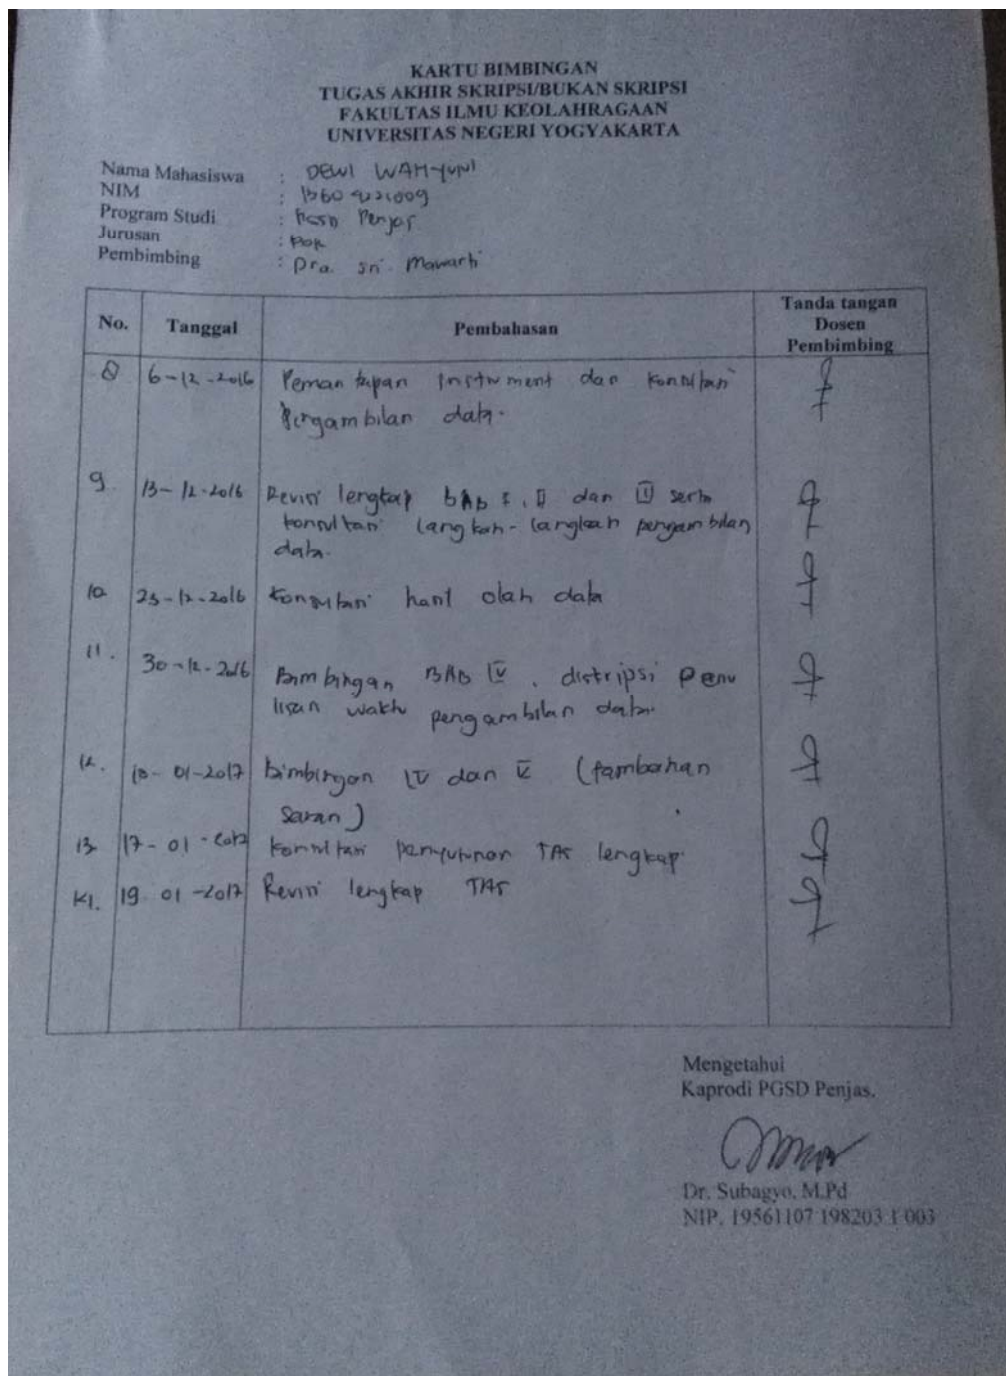 KARTU BIMBINGAN
TUGAS AKHIR SKRIPSI/BUKAN SKRIPSI
FAKULTAS ILMU KEOLAHRAGAAN
UNIVERSITAS NEGERI YOGYAKARTA
Nama Mahasiswa : DEWI WAHYUNI
NIM :
Program Studi : PGSD Penjas
Jurusan : POR
Pembimbing : Dra. Sri Mawarti
No. Tanggal Pembahasan Tanda tangan Dosen Pembimbing
8 6-12-2016 Pemantapan instrument dan konsultasi
Pengambilan data.
9. 13-12-2016 Revisi lengkap BAB I, II dan III serta
konsultasi langkah-langkah pengambilan
data.
10 23-12-2016 Konsultasi hasil olah data
11. 30-12-2016 Bimbingan BAB IV, distripsi penu
lisan waktu pengambilan data.
12. 10-01-2017 bimbingan IV dan V (tambahan
saran)
13 17-01-2017 Konsultasi penyusunan TAS lengkap.
14. 19-01-2017 Revisi lengkap TAS
Mengetahui
Kaprodi PGSD Penjas.
Dr. Subagyo, M.Pd
NIP. 19561107 198203 1 003